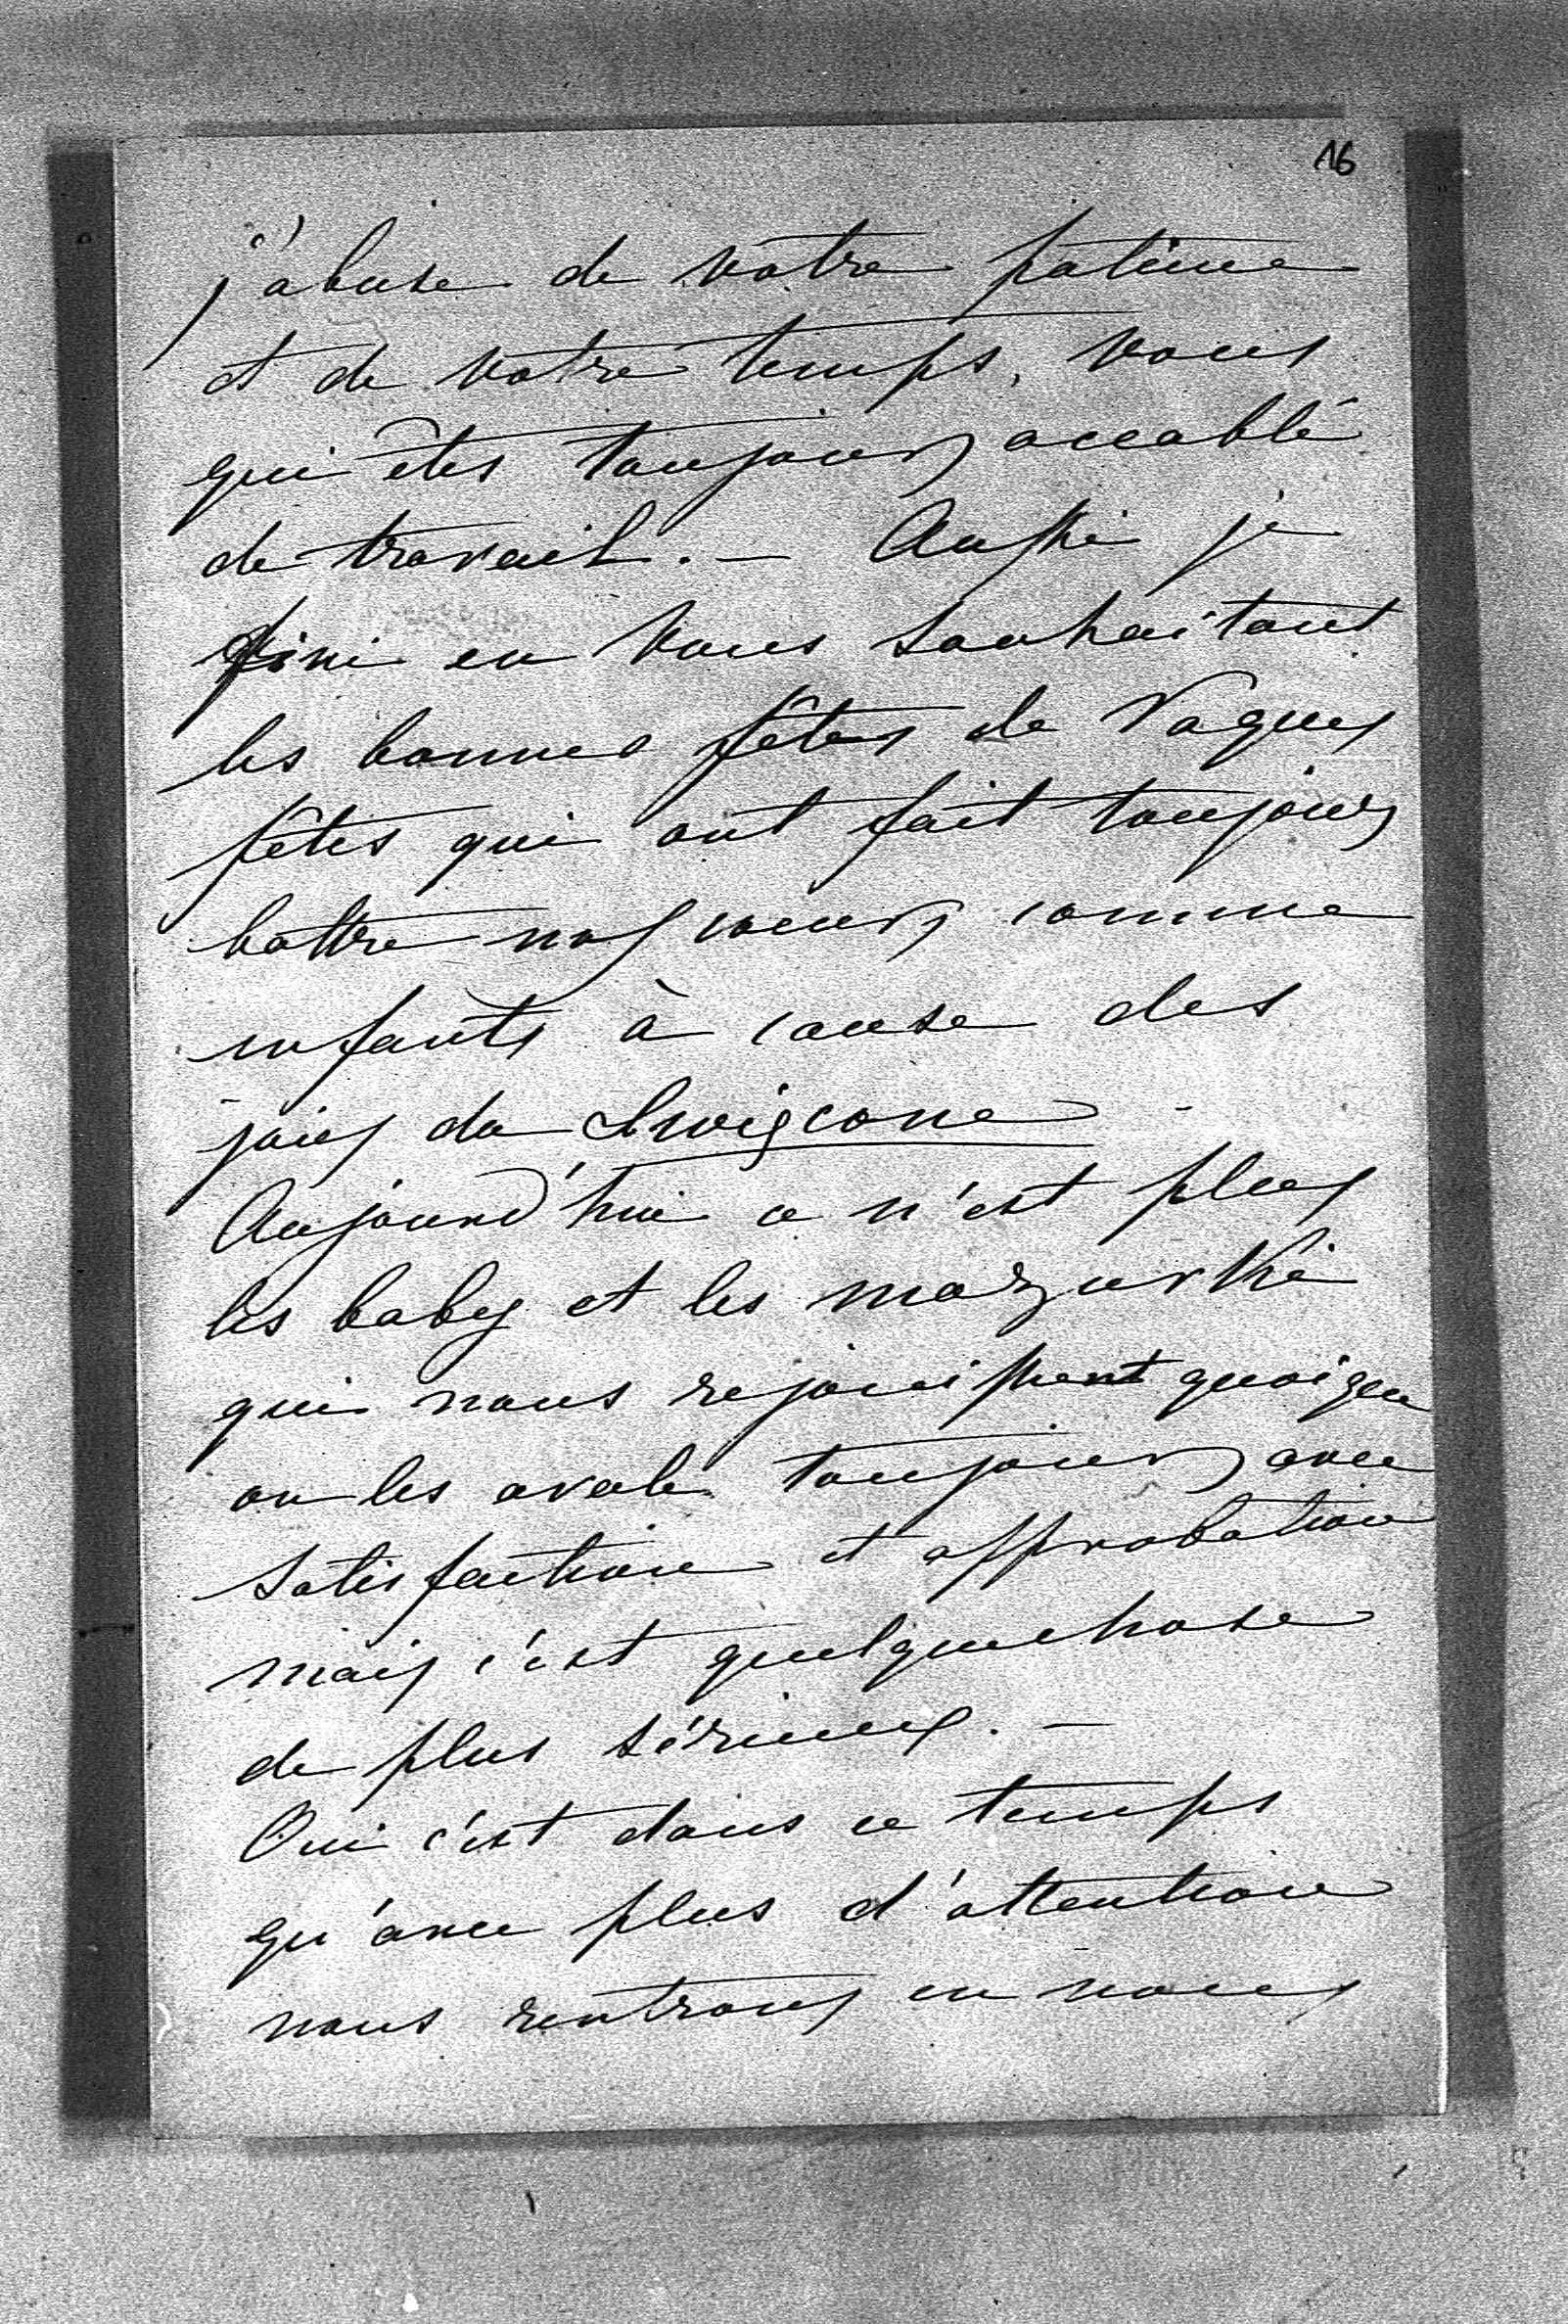 16
j'abuse de votre patience
et de votre temps, vous
qui êtes toujours accablé
de travail. – Aussi je
fini en vous souhaitant
les bonnes fêtes de Paques
fêtes qui ont fait toujours
battre nos coeurs comme
enfants à cause des
joies du Swięcone –
Aujourd'hui ce n'est plus
les baby et les mazurki
qui nous rejouissent quoique
on les avale toujours avec
satisfaction et approbation
mais c'est quelquechose
de plus sérieux. –
Oui c'est dans ce temps
qu'avec plus d'attention
nous rentrons en nous